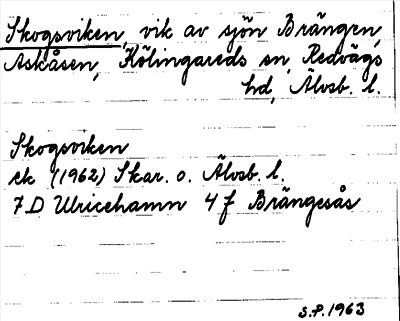 Skogsviken, vik av sjön Brängen,
Askåsen, Kölingareds sn, Redvägs
hd, Älvsb. l.
Skogsviken
ek (1962) Skar. o. Älvsb. l.
7 D Ulricehamn 4 f Brängesås
S.P. 1963